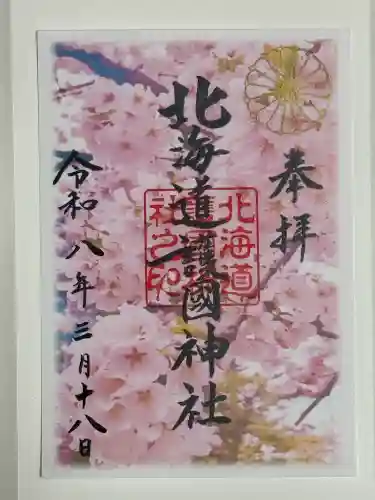 奉拝
北海道護國神社
北海道護國神社之印
令和八年三月十八日